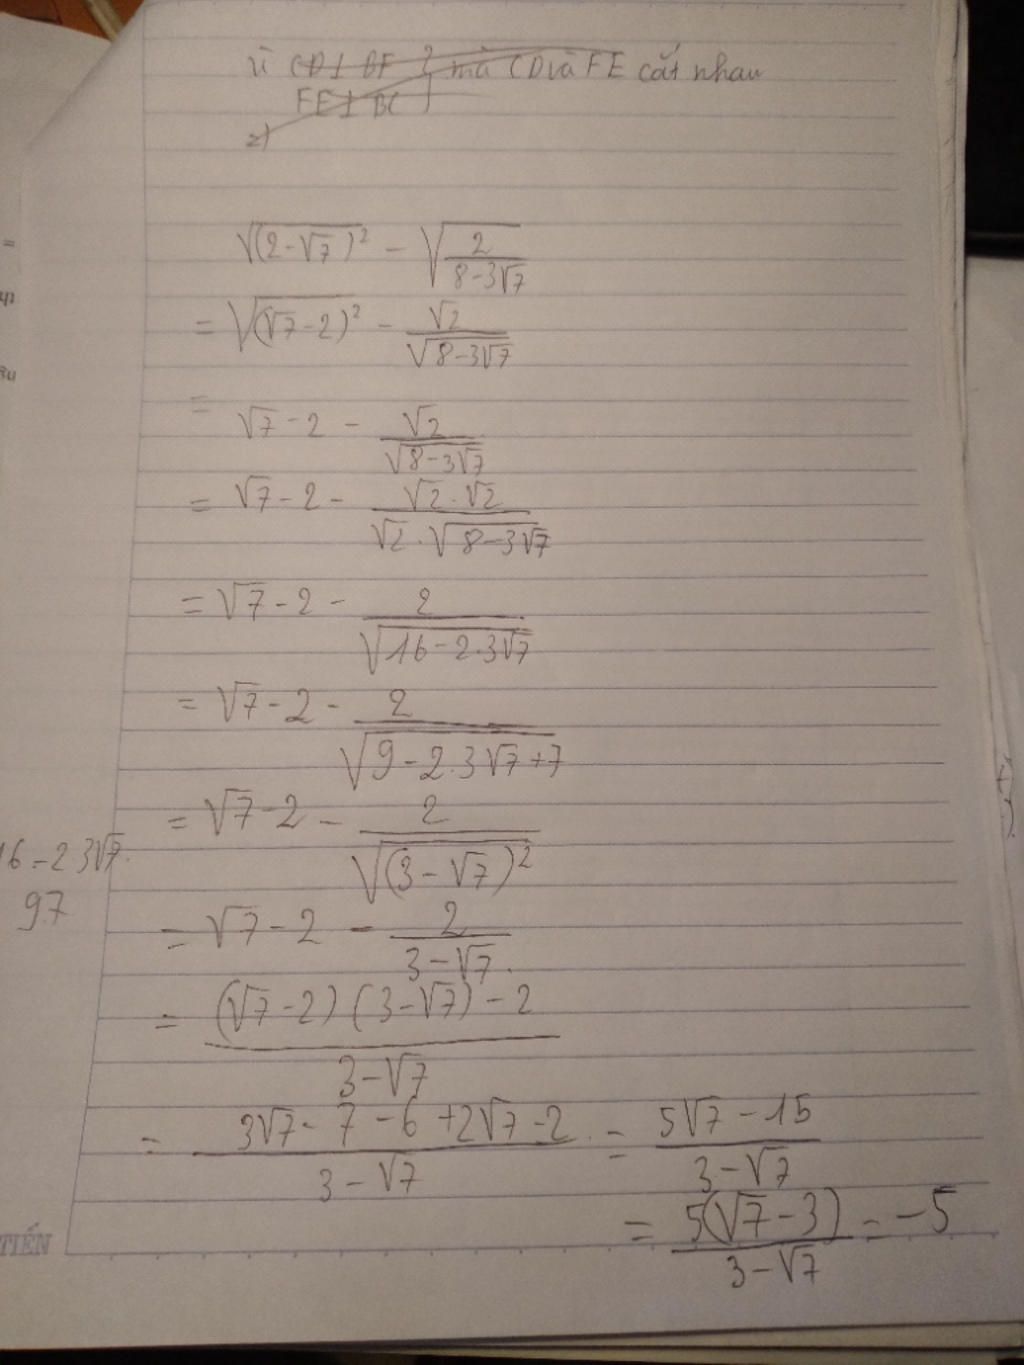 vì CD⊥BF } mà CD và FE cắt nhau
FE⊥BC
2)
√(2-√7)² - √(2/(8-3√7))
= √(√7-2)² - √2/√(8-3√7)
= √7-2 - √2/√(8-3√7)
= √7-2 - (√2.√2)/(√2.√(8-3√7))
= √7-2 - 2/√(16-2.3√7)
= √7-2 - 2/√(9-2.3√7+7)
= √7-2 - 2/√(3-√7)²
16-2 3√7.
97
= √7-2 - 2/(3-√7).
= ((√7-2)(3-√7)-2)/(3-√7)
= (3√7-7-6+2√7-2)/(3-√7) = (5√7-15)/(3-√7)
= 5(√7-3)/(3-√7) = -5
TIẾN